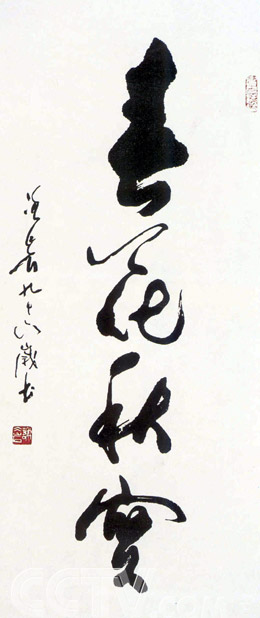 春花秋實
九十六歲书
CCTV.com